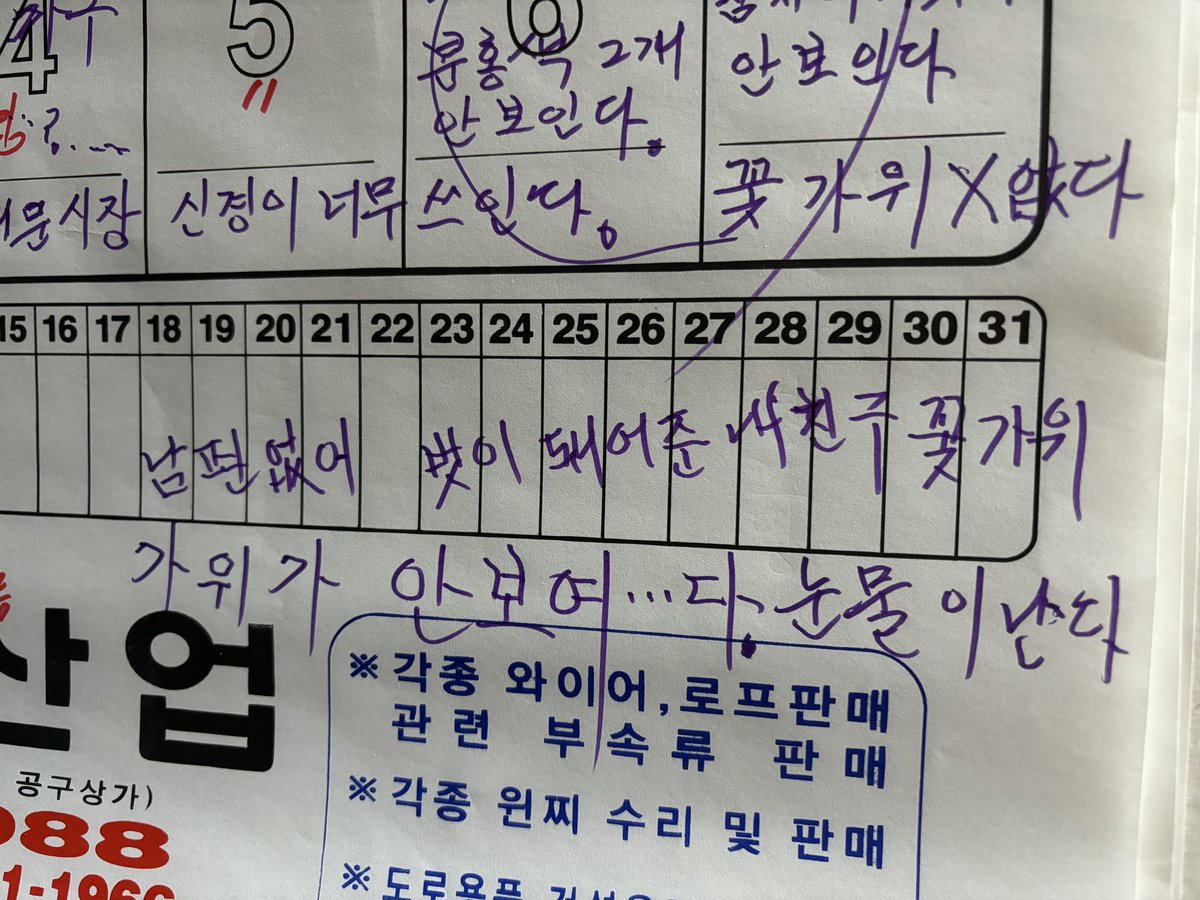 4 5 6
분홍색 2개
안보인다.
안보인다
문시장
신경이 너무 쓰인다.
꽃가위 X 없다
15 16 17 18 19 20 21 22 23 24 25 26 27 28 29 30 31
남편없어 벗이 돼어준 내친구 꽃가위
가위가 안보여...다. 눈물이 난다
산업
공구상가)
988
1-1966
※ 각종 와이어,로프판매
관련 부속류 판매
※ 각종 윈찌 수리 및 판매
※ 도로용품